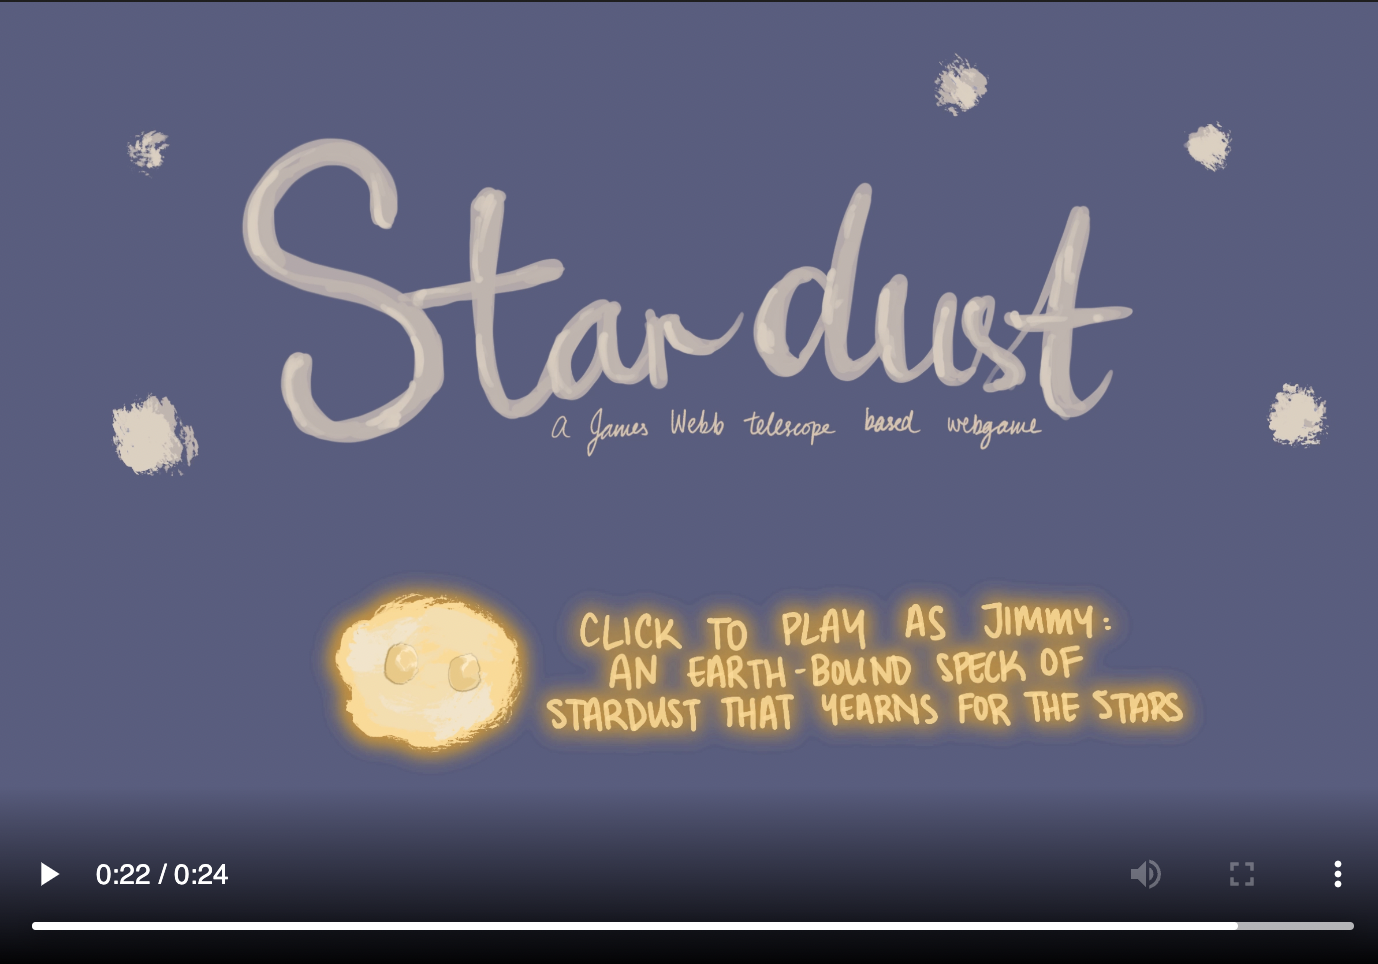 Stardust
a James Webb telescope based webgame
CLICK TO PLAY AS JIMMY:
AN EARTH-BOUND SPECK OF
STARDUST THAT YEARNS FOR THE STARS
0:22 / 0:24